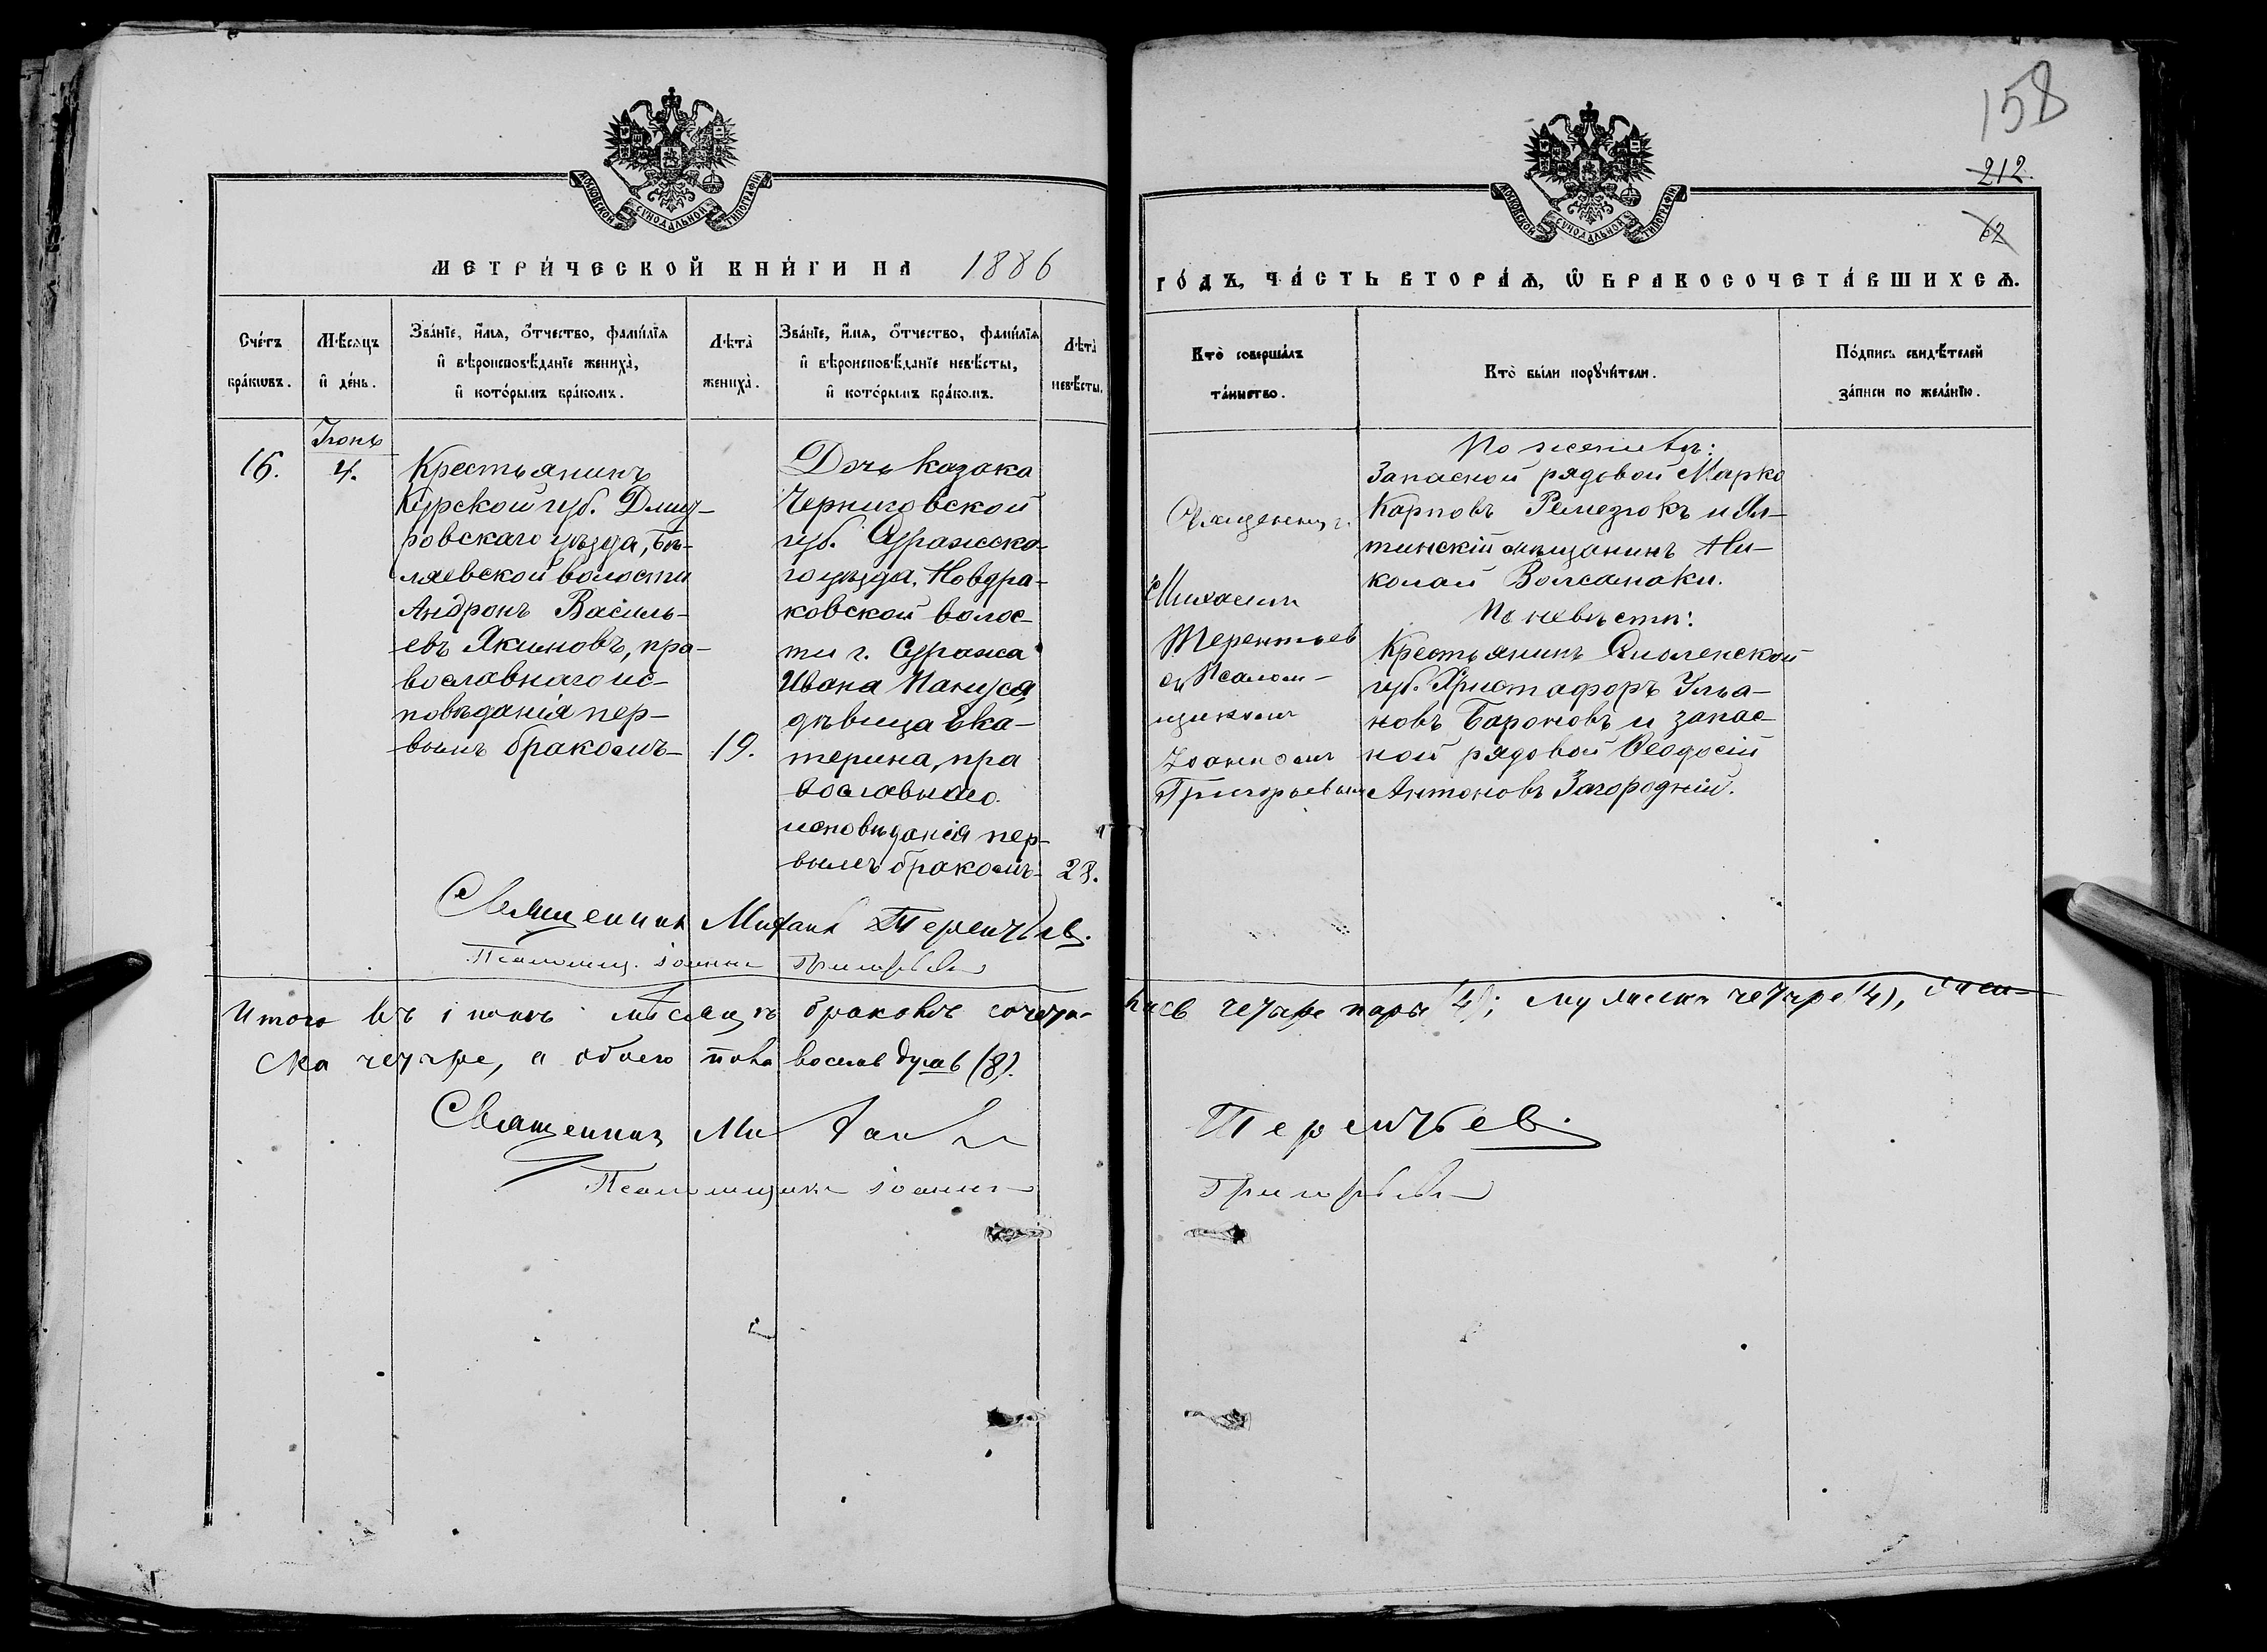 158
212.
62
МОСКОВСКОЙ СУНОДАЛЬНОЙ ТИПОГРАФІИ
МОСКОВСКОЙ СУНОДАЛЬНОЙ ТИПОГРАФІИ
МЕТРИ́ЧЕСКОЙ КНИ́ГИ НА 1886
ГО́ДЪ, ЧА́СТЬ ВТОРА́Ѧ, Ѡ БРАКОСОЧЕТА́ВШИХСѦ.
Сче́тъ
бра́кѡвъ.
Мѣ́сяцъ
и҆ де́нь.
Зва́нїе, и҆́мѧ, ѻ҆́тчество, фамилїѧ
и҆ вѣроисповѣ́данїе жениха̀,
и҆ кото́рымъ бра́комъ.
Лѣта̀
жениха̀.
Зва́нїе, и҆́мѧ, ѻ҆́тчество, фамилїѧ
и҆ вѣроисповѣ́данїе невѣ́сты,
и҆ кото́рымъ бра́комъ.
Лѣта̀
невѣ́сты.
Кто̀ соверша́лъ
та́инство.
Кто̀ бы́ли порꙋчи́тели.
По́дпись свидѣ́телей
за́писи по жела́нїю.
Іюнь
16.
4.
Крестьянинъ
Курской губ. Дми-
ровскаго уѣзда, Бѣ-
ляевской волости
Андронъ Василь-
евъ Якимовъ, пра-
вославнаго ис-
повѣданія пер-
вымъ бракомъ-
19.
Дочь казака
Черниговской
губ. Суражско-
го уѣзда, Новдра-
ковской волос-
ти г. Суража
Ивана Папуса,
дѣвица Ека-
терина, пра
вославнаго
исповѣданія пер-
вымъ бракомъ-
28.
Священник.
Михаилъ
Терентьев
съ Псалом-
щикомъ
Іоанномъ
Григорьевымъ
По женихѣ:
Запасной рядовой Марко
Карповъ Ремезюкъ и Ял-
тинскій мѣщанинъ Ни-
колай Волсамаки.
По невѣстѣ:
Крестьянинъ Смоленской
губ. Христафоръ Улья-
новъ Бароновъ и запас-
ной рядовой Ѳеодосій
Антоновъ Загородній.
Священникъ Михаилъ Терентьев.
Псаломщ. Іоаннъ Григорьевъ
Итого въ іюнѣ мѣсяцѣ браковъ сочета-
лись четыре пары (4); мужеска четыре (4), женс-
ка четыре, а обоего пола восемь душъ (8).
Священникъ Михаилъ Терентьев.
Псаломщикъ Іоаннъ Григорьевъ